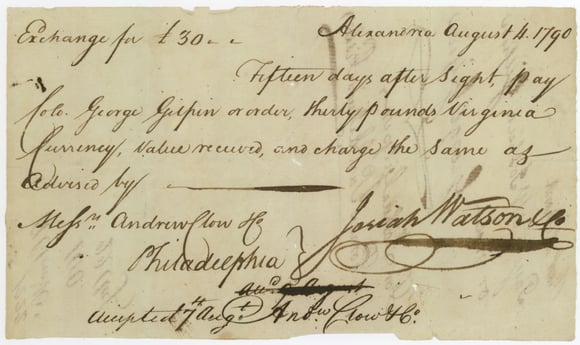 Exchange for £30.. Alexandria August 4. 1790
Fifteen days after Sight, pay
Colo. George Gilpin or order, thirty pounds Virginia
Currency, Value received, and charge the same as
advised by
Messrs. Andrew Clow & Co
Philadelphia
Josiah Watson & Co
Accepted 7th Augt. Andw Clow & Co.